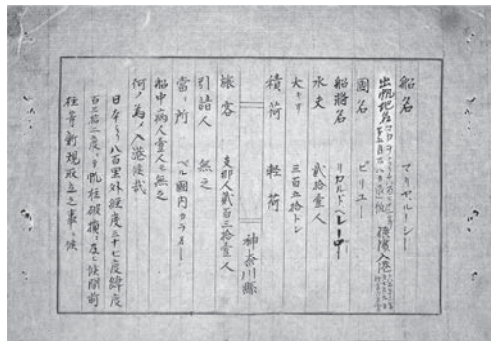 船名 マリヤルーシー
出帆地名
國名 ピリユー
船將名 リカルドヘレーロ
水夫 貳拾壹人
大サ 三百五拾トン
積荷 軽荷
神奈川縣
旅客 支那人貳百三拾壹人
引請人 無之
當所 ペル國内カラヲー
船中病人壹人モ無之
何ノ為ノ入港候哉
日本ヨリ八百里外経度三十七度緯度
百三拾二度ニテ帆柱破損ニ及候間前
柱等新規取立之事ニ候